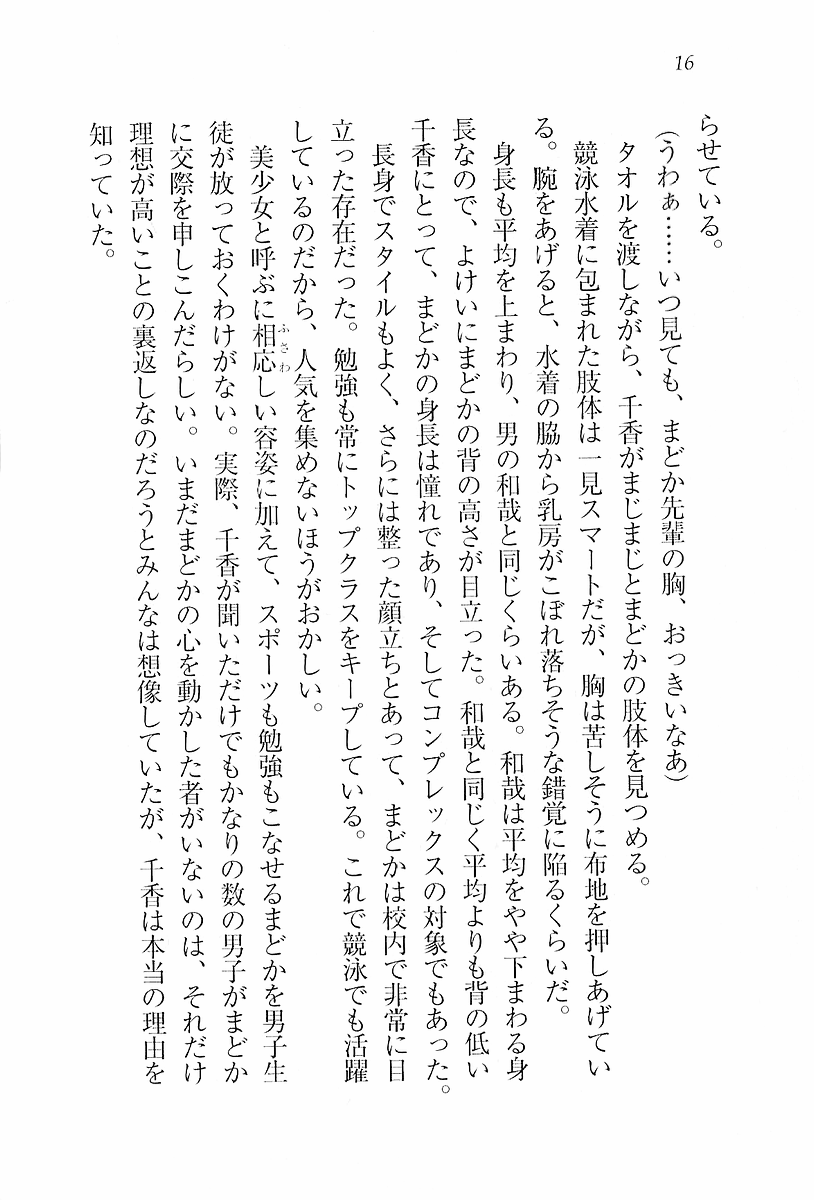 16
らせている。
（うわぁ……いつ見ても、まどか先輩の胸、おっきいなあ）
タオルを渡しながら、千香がまじまじとまどかの肢体を見つめる。
競泳水着に包まれた肢体は一見スマートだが、胸は苦しそうに布地を押しあげてい
る。腕をあげると、水着の脇から乳房がこぼれ落ちそうな錯覚に陥るくらいだ。
身長も平均を上まわり、男の和哉と同じくらいある。和哉は平均をやや下まわる身
長なので、よけいにまどかの背の高さが目立った。和哉と同じく平均よりも背の低い
千香にとって、まどかの身長は憧れであり、そしてコンプレックスの対象でもあった。
長身でスタイルもよく、さらには整った顔立ちとあって、まどかは校内で非常に目
立った存在だった。勉強も常にトップクラスをキープしている。これで競泳でも活躍
しているのだから、人気を集めないほうがおかしい。
美少女と呼ぶに相応しい容姿に加えて、スポーツも勉強もこなせるまどかを男子生
ふさわ
徒が放っておくわけがない。実際、千香が聞いただけでもかなりの数の男子がまどか
に交際を申しこんだらしい。いまだまどかの心を動かした者がいないのは、それだけ
理想が高いことの裏返しなのだろうとみんなは想像していたが、千香は本当の理由を
知っていた。